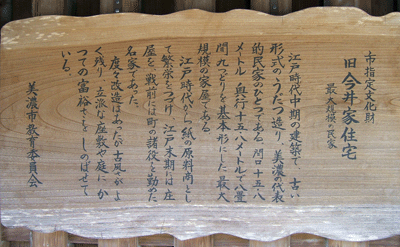 市指定文化財
旧今井家住宅
最大規模の民家
江戸時代中期の建築で、古い
形式のうだつ造り、美濃の代表
的民家のひとつである。間口十五・八
メートル奥行十五・八メートルで八畳
間九つどりを基本形にした、最大
規模の家屋である
江戸時代から紙の原料商とし
て繁栄をつづけ、江戸末期には庄
屋を、戦前には町の諸役を勤めた
名家であった。
度々改造はあったが古風がよ
く残り、立派な座敷や庭にか
つての富裕さをしのばせて
いる。
美濃市教育委員会